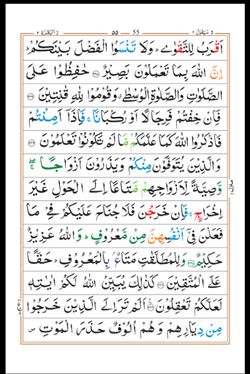 سَيَقُوْلُ ٢ ٥٥ 55 اَلْبَقَرَة ٢
اَقْرَبُ لِلتَّقْوٰى ؕ وَلَا تَنْسَوُا الْفَضْلَ بَيْنَكُمْ ؕ
اِنَّ اللّٰهَ بِمَا تَعْمَلُوْنَ بَصِيْرٌ ۝ حٰفِظُوْا عَلَى
الصَّلَوٰتِ وَالصَّلٰوةِ الْوُسْطٰى ۗ وَقُوْمُوْا لِلّٰهِ قٰنِتِيْنَ ۝
فَاِنْ خِفْتُمْ فَرِجَالًا اَوْ رُكْبَانًا ۚ فَاِذَاۤ اَمِنْتُمْ
فَاذْكُرُوا اللّٰهَ كَمَا عَلَّمَكُمْ مَّا لَمْ تَكُوْنُوْا تَعْلَمُوْنَ ۝
وَالَّذِيْنَ يُتَوَفَّوْنَ مِنْكُمْ وَيَذَرُوْنَ اَزْوَاجًا ۖۚ
وَّصِيَّةً لِّاَزْوَاجِهِمْ مَّتَاعًا اِلَى الْحَوْلِ غَيْرَ
اِخْرَاجٍ ۚ فَاِنْ خَرَجْنَ فَلَا جُنَاحَ عَلَيْكُمْ فِيْ مَا
فَعَلْنَ فِيْۤ اَنْفُسِهِنَّ مِنْ مَّعْرُوْفٍ ؕ وَاللّٰهُ عَزِيْزٌ
حَكِيْمٌ ۝ وَلِلْمُطَلَّقٰتِ مَتَاعٌۢ بِالْمَعْرُوْفِ ؕ حَقًّا
عَلَى الْمُتَّقِيْنَ ۝ كَذٰلِكَ يُبَيِّنُ اللّٰهُ لَكُمْ اٰيٰتِهٖ
لَعَلَّكُمْ تَعْقِلُوْنَ ۝ اَلَمْ تَرَ اِلَى الَّذِيْنَ خَرَجُوْا
مِنْ دِيَارِهِمْ وَهُمْ اُلُوْفٌ حَذَرَ الْمَوْتِ